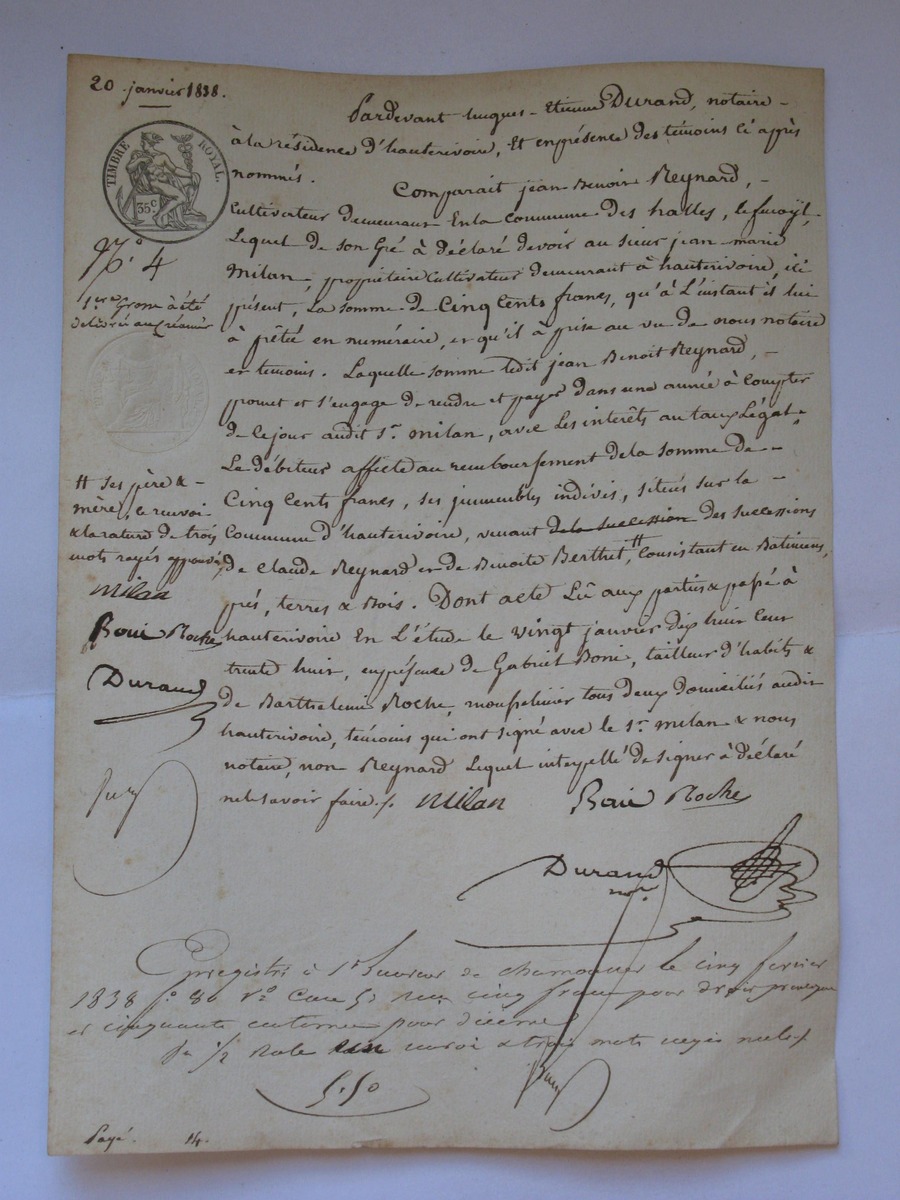 20 janvier 1838.
Pardevant hugues-Etienne Durand, notaire -
à la résidence d'hauterivoire, Et en présence des témoins ci après
nommés.
TIMBRE ROYAL.
35c
Comparait jean Benoit Reynard, -
Cultivateur demeurant En la commune des halles,
Lequel de son Gré à déclaré devoir au sieur jean marie
Milan, propriétaire Cultivateur demeurant à hauterivoire, ici
présent, La somme de Cinq Cents francs, qu'à L'instant il lui
à prêtée en numéraire, et qu'il à prise au vu de nous notaire
et témoins. Laquelle somme ledit jean Benoit Reynard, -
promet et s'engage de rendre et payer dans une année à Compter
de ce jour audit Sr. milan, avec Les interêts au taux Légal.
Le débiteur affecte au remboursement de la somme de -
Cinq Cents francs, ses immeubles indivis, situés sur la -
Commune d'hauterivoire, venant de la succession des successions
de Claude Reynard et de Benoite Berthet, # Consistant en Batimens,
prés, terres & Bois. Dont acte Lû aux parties & passé à
hauterivoire En L'étude le vingt janvier dix huit Cent
trente huit, en présence de Gabriel Boni, tailleur d'habits &
de Barthelemi Roche, tous deux domiciliés audit
hauterivoire, témoins qui ont signé avec le Sr. milan & nous
notaire, non Reynard Lequel interpellé de signer à déclaré
ne le savoir faire./.
Milan
Boni Roche
Durand
nore
No. 4
1ere Grosse à été
délivrée au Créancier
# ses père & -
mère, le renvoi
& la rature de trois
mots rayés approuvés,
Milan
Boni Roche
Durand
Enregistré à St Laurent de chamousset le cinq fevrier
1838 fo 80 Vo Case 5 reçu cinq francs pour droit
et cinquante centimes pour décime
1/2 Role un renvoi & trois mots rayés nuls
5.50
Payé. 14.